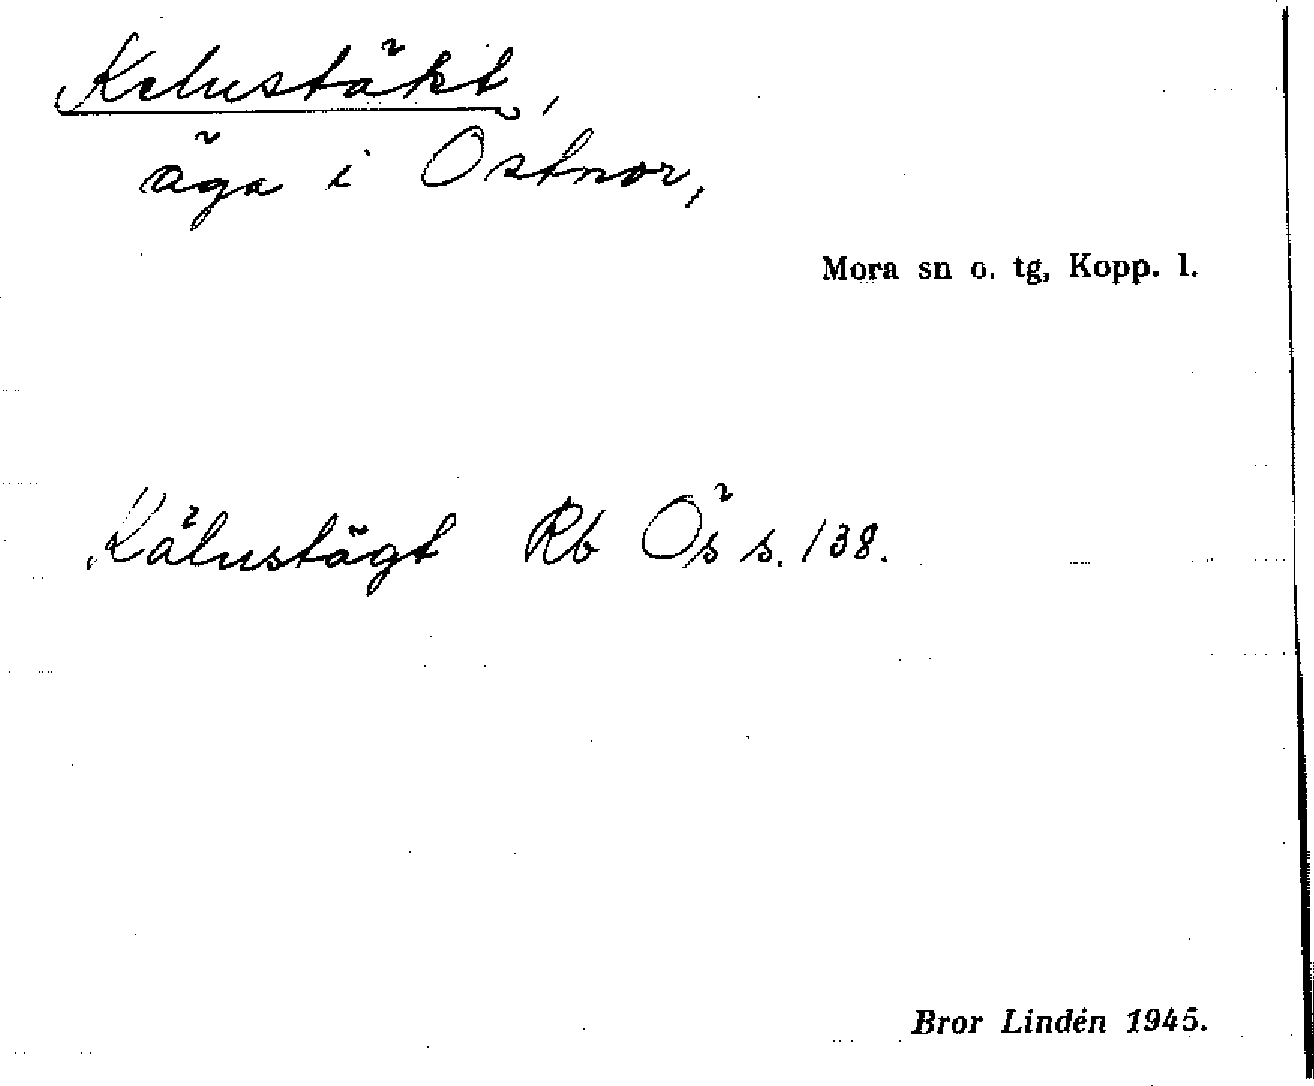 Kelustäkt,
äga i Östnor,
Mora sn o. tg, Kopp. l.
Kälustägt Rb Ös s. 138.
Bror Lindén 1945.